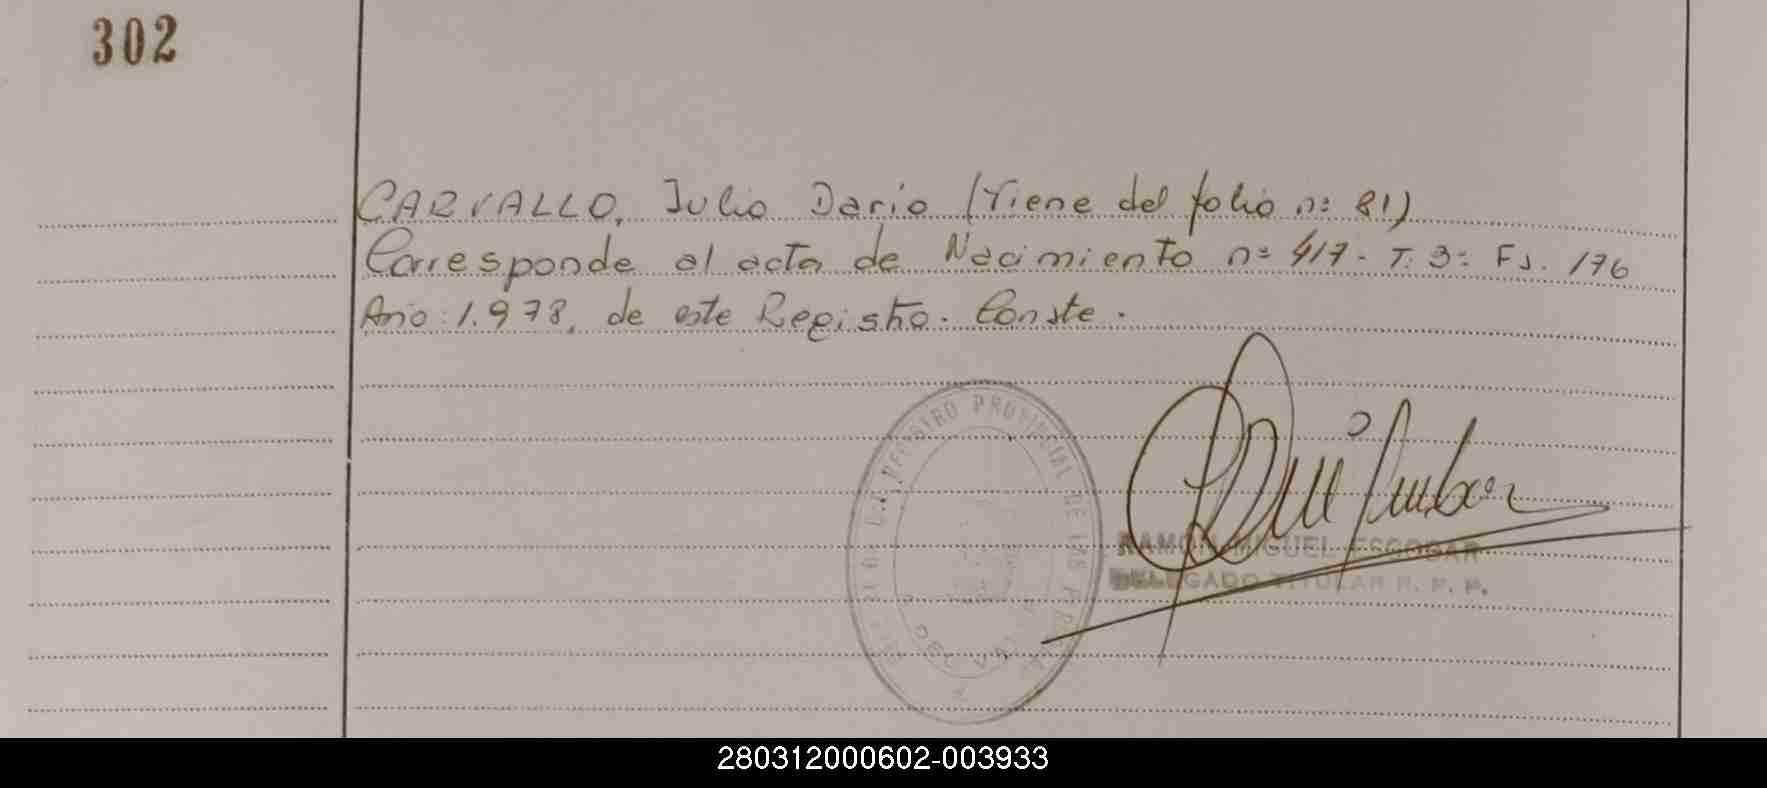 302
CARVALLO, Julio Dario (Viene del folio nº 81)
Corresponde al acta de Nacimiento nº 417. T. 3º Fs. 176
Año 1.978, de este Registro. Conste.
REGISTRO PROVINCIAL DE LAS
DEL VA
RAMON MIGUEL ESCOBAR
DELEGADO TITULAR R. P. P.
280312000602-003933